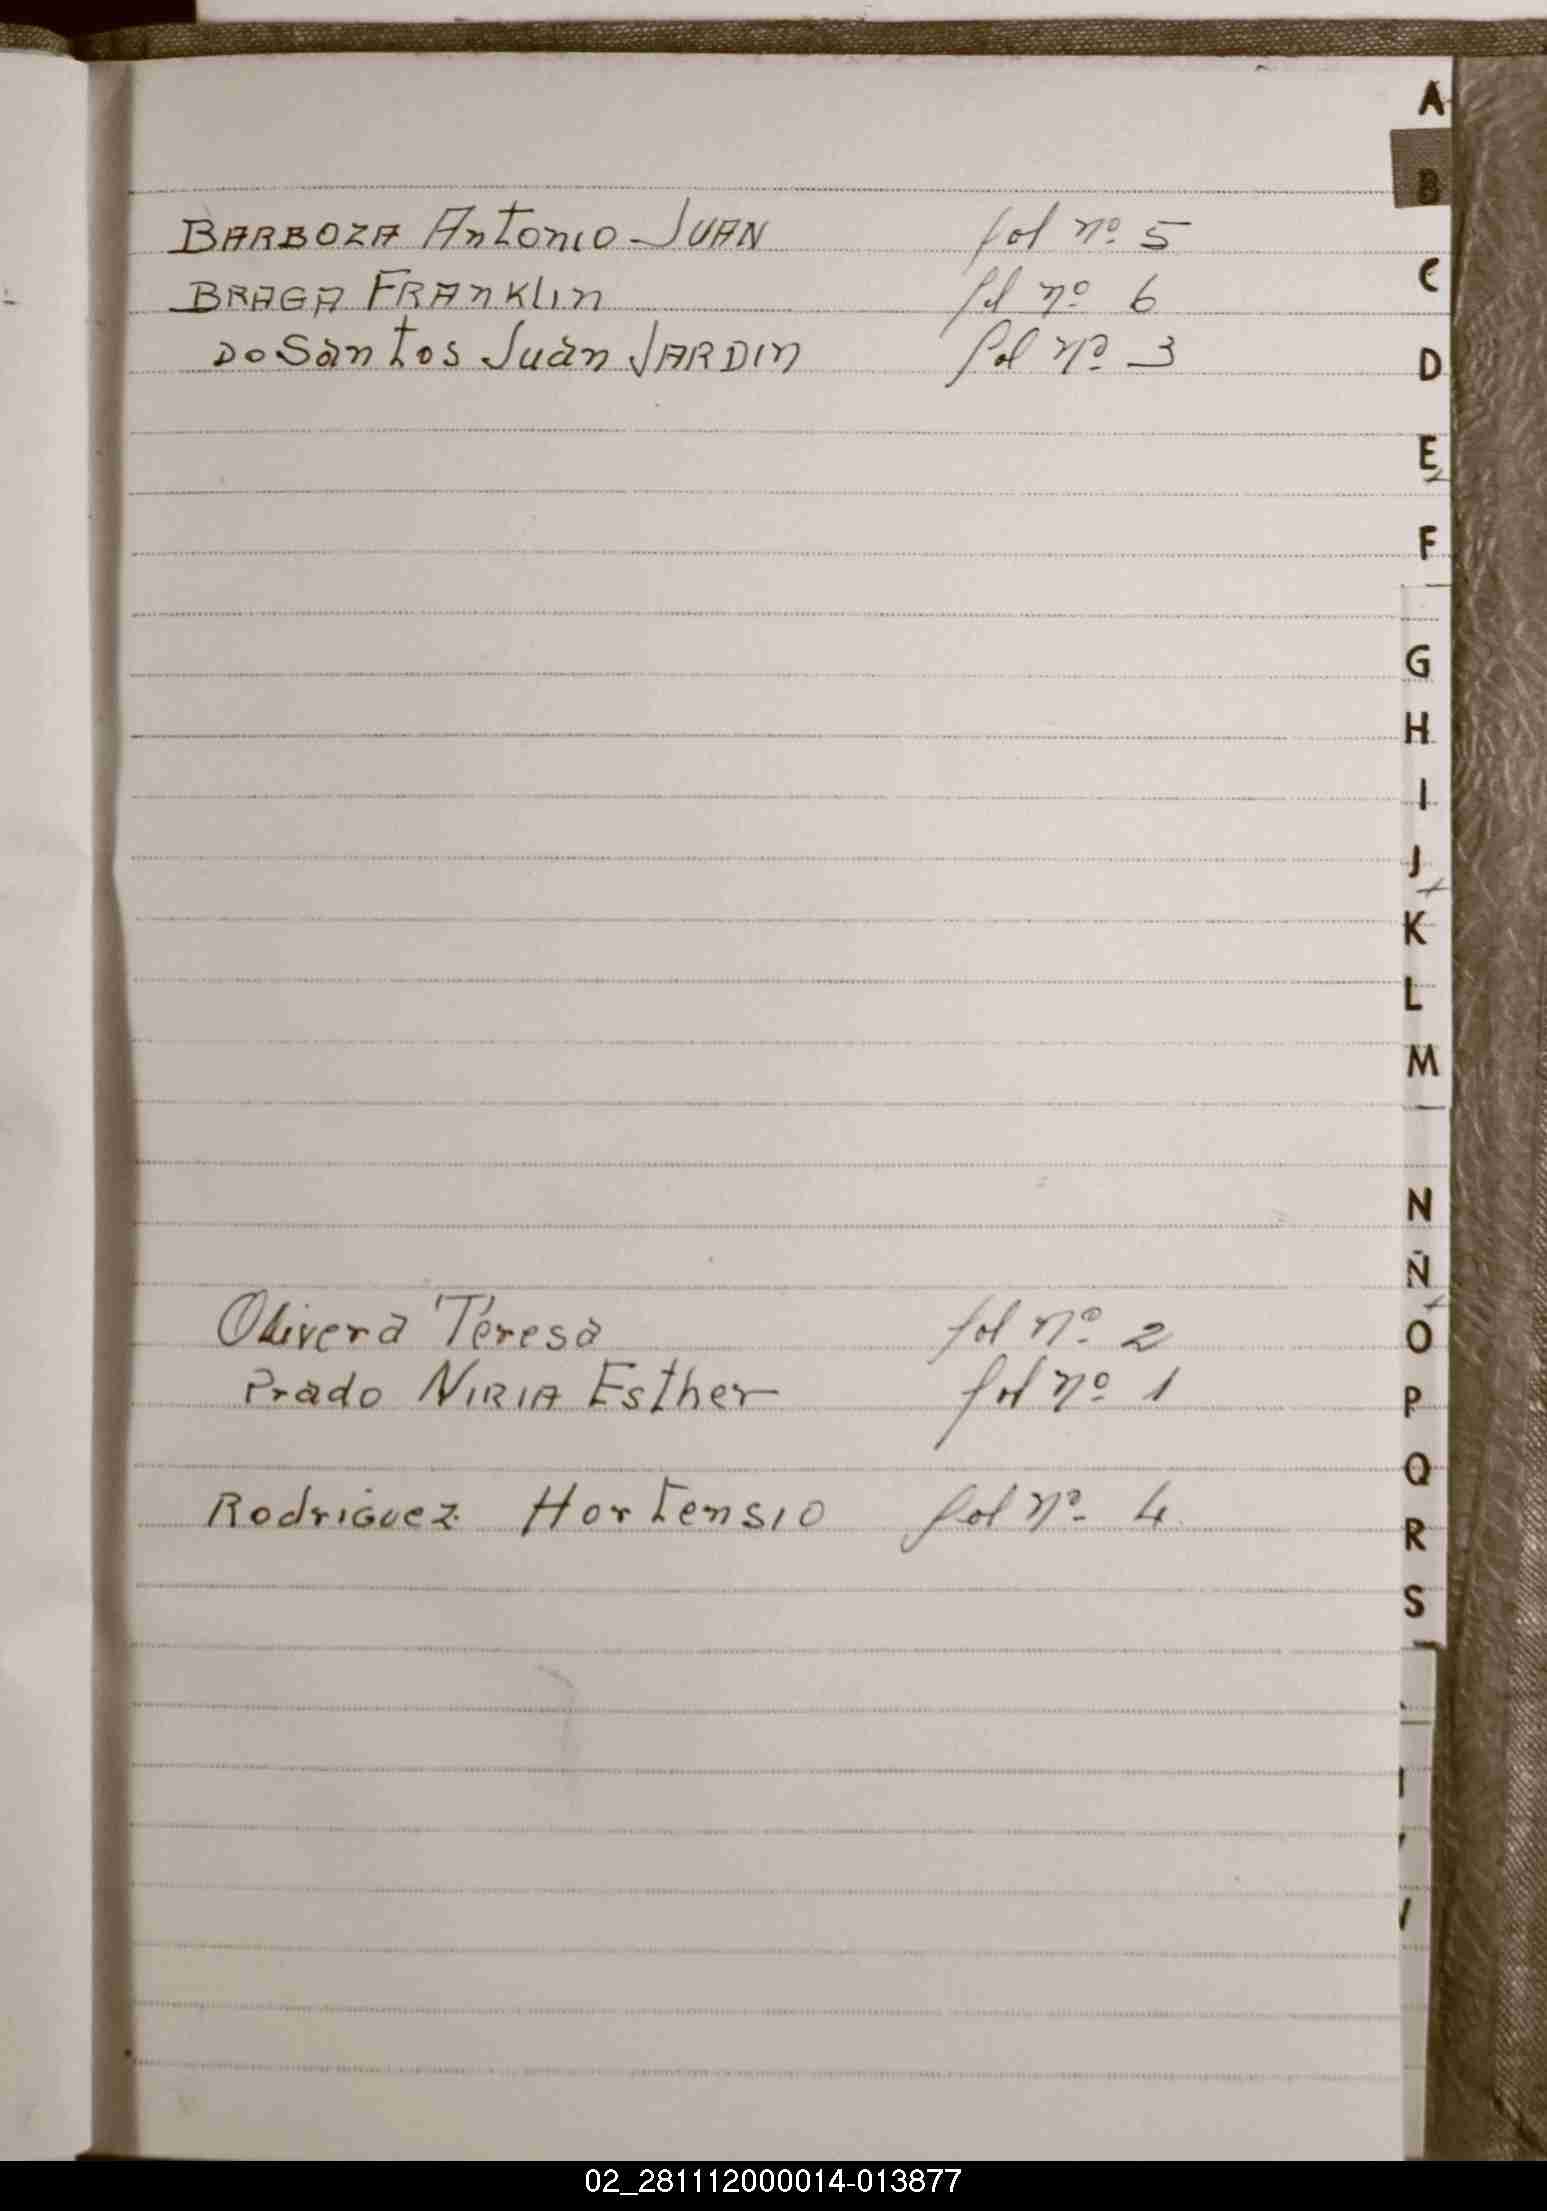 BARBOZA Antonio JUAN fol nº 5
BRAGA FRANKLIN fol nº 6
Do Santos Juan JARDIN fol nº 3
Olivera Teresa fol nº 2
Prado NIRIA Esther fol nº 1
Rodriguez Hortensio fol nº 4
A
B
C
D
E
F
G
H
I
J
K
L
M
N
Ñ
O
P
Q
R
S
02_281112000014-013877